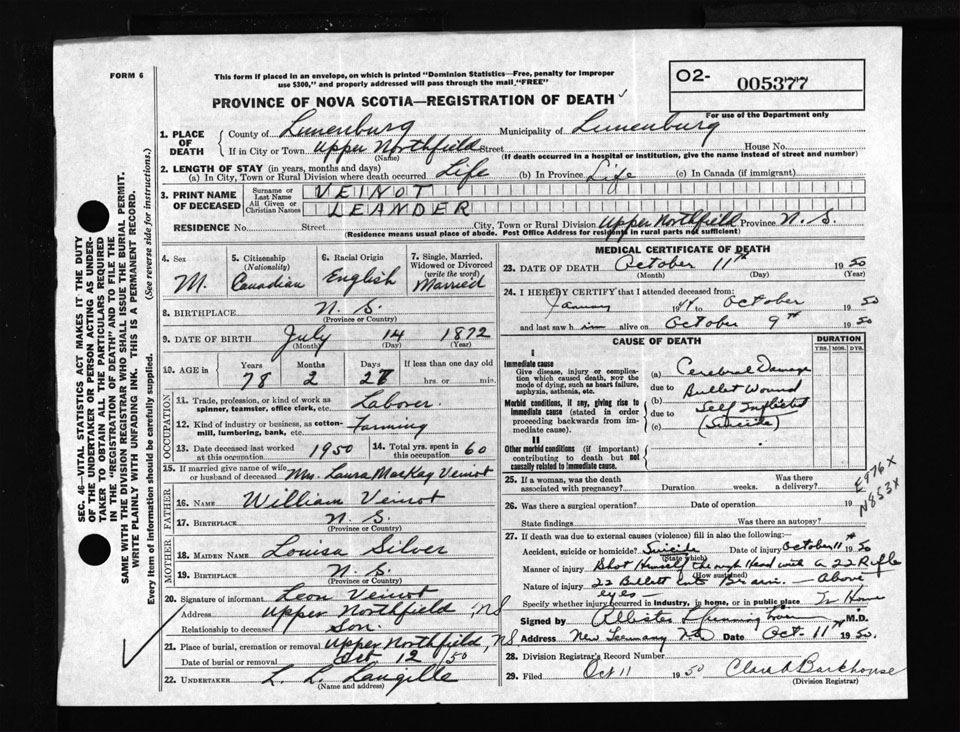 FORM 6
This form if placed in an envelope, on which is printed "Dominion Statistics—Free, penalty for improper
use $300," and properly addressed will pass through the mail "FREE"
O2- 005377
For use of the Department only
PROVINCE OF NOVA SCOTIA—REGISTRATION OF DEATH
1. PLACE OF DEATH
County of Lunenburg Municipality of Lunenburg
If in City or Town Upper Northfield Street House No.
(Name) (If death occurred in a hospital or institution, give the name instead of street and number)
2. LENGTH OF STAY (in years, months and days)
(a) In City, Town or Rural Division where death occurred Life (b) In Province Life (c) In Canada (if immigrant)
3. PRINT NAME OF DECEASED
Surname or Last Name VEINOT
All Given or Christian Names LEANDER
RESIDENCE No. Street City, Town or Rural Division Upper Northfield Province N. S.
(Residence means usual place of abode. Post Office Address for residents in rural parts not sufficient)
4. Sex M.
5. Citizenship (Nationality) Canadian
6. Racial Origin English
7. Single, Married, Widowed or Divorced (write the word) Married
8. BIRTHPLACE N. S.
(Province or Country)
9. DATE OF BIRTH July 14 1872
(Month) (Day) (Year)
10. AGE in Years Months Days If less than one day old
78 2 27 hrs. or min.
OCCUPATION
11. Trade, profession or kind of work as spinner, teamster, office clerk, etc. Laborer.
12. Kind of industry or business, as cotton-mill, lumbering, bank, etc. Farming
13. Date deceased last worked at this occupation 1950
14. Total yrs. spent in this occupation 60
15. If married give name of wife or husband of deceased Mrs. Laura MacKay Veinot
FATHER
16. NAME William Veinot
17. BIRTHPLACE N. S.
(Province or Country)
MOTHER
18. MAIDEN NAME Louisa Silver
19. BIRTHPLACE N. S.
(Province or Country)
20. Signature of informant Leon Veinot
Address Upper Northfield, NS
Relationship to deceased Son.
21. Place of burial, cremation or removal Upper Northfield, NS
Date of burial or removal Oct 12 /50
22. UNDERTAKER L. L. Langille
(Name and address)
MEDICAL CERTIFICATE OF DEATH
23. DATE OF DEATH October 11th 1950
(Month) (Day) (Year)
24. I HEREBY CERTIFY that I attended deceased from:
January to October 1950
and last saw him alive on October 9th 1950
CAUSE OF DEATH DURATION
YRS. MOS. DYS.
I
Immediate cause
Give disease, injury or complication which caused death, NOT the mode of dying, such as heart failure, asphyxia, asthenia, etc.
(a) Cerebral Damage
due to
Morbid conditions, if any, giving rise to immediate cause (stated in order proceeding backwards from immediate cause).
(b) Bullet Wound
due to Self Inflicted
(c) (Suicide)
II
Other morbid conditions (if important) contributing to death but not causally related to immediate cause.
E976X
N853X
25. If a woman, was the death associated with pregnancy? Duration weeks. Was there a delivery?
26. Was there a surgical operation? Date of operation
State findings Was there an autopsy?
27. If death was due to external causes (violence) fill in also the following:
Accident, suicide or homicide? Suicide Date of injury October 11th 1950
(State which)
Manner of injury Shot Himself through Head with a 22 Rifle
(How sustained)
Nature of injury 22 Bullett into Brain. — Above
eyes —
Specify whether injury occurred in industry, in home, or in public place In Home
Signed by M.D.
Address New Germany NS Date Oct. 11th 1950.
28. Division Registrar's Record Number
29. Filed Oct 11 1950 Clara A Barkhouse
(Division Registrar)
SEC. 46—VITAL STATISTICS ACT MAKES IT THE DUTY
OF THE UNDERTAKER OR PERSON ACTING AS UNDER-
TAKER TO OBTAIN ALL THE PARTICULARS REQUIRED
IN THE "REGISTRATION OF DEATH" AND TO FILE THE
SAME WITH THE DIVISION REGISTRAR WHO SHALL ISSUE THE BURIAL PERMIT.
WRITE PLAINLY WITH UNFADING INK. THIS IS A PERMANENT RECORD.
Every item of information should be carefully supplied. (See reverse side for instructions.)